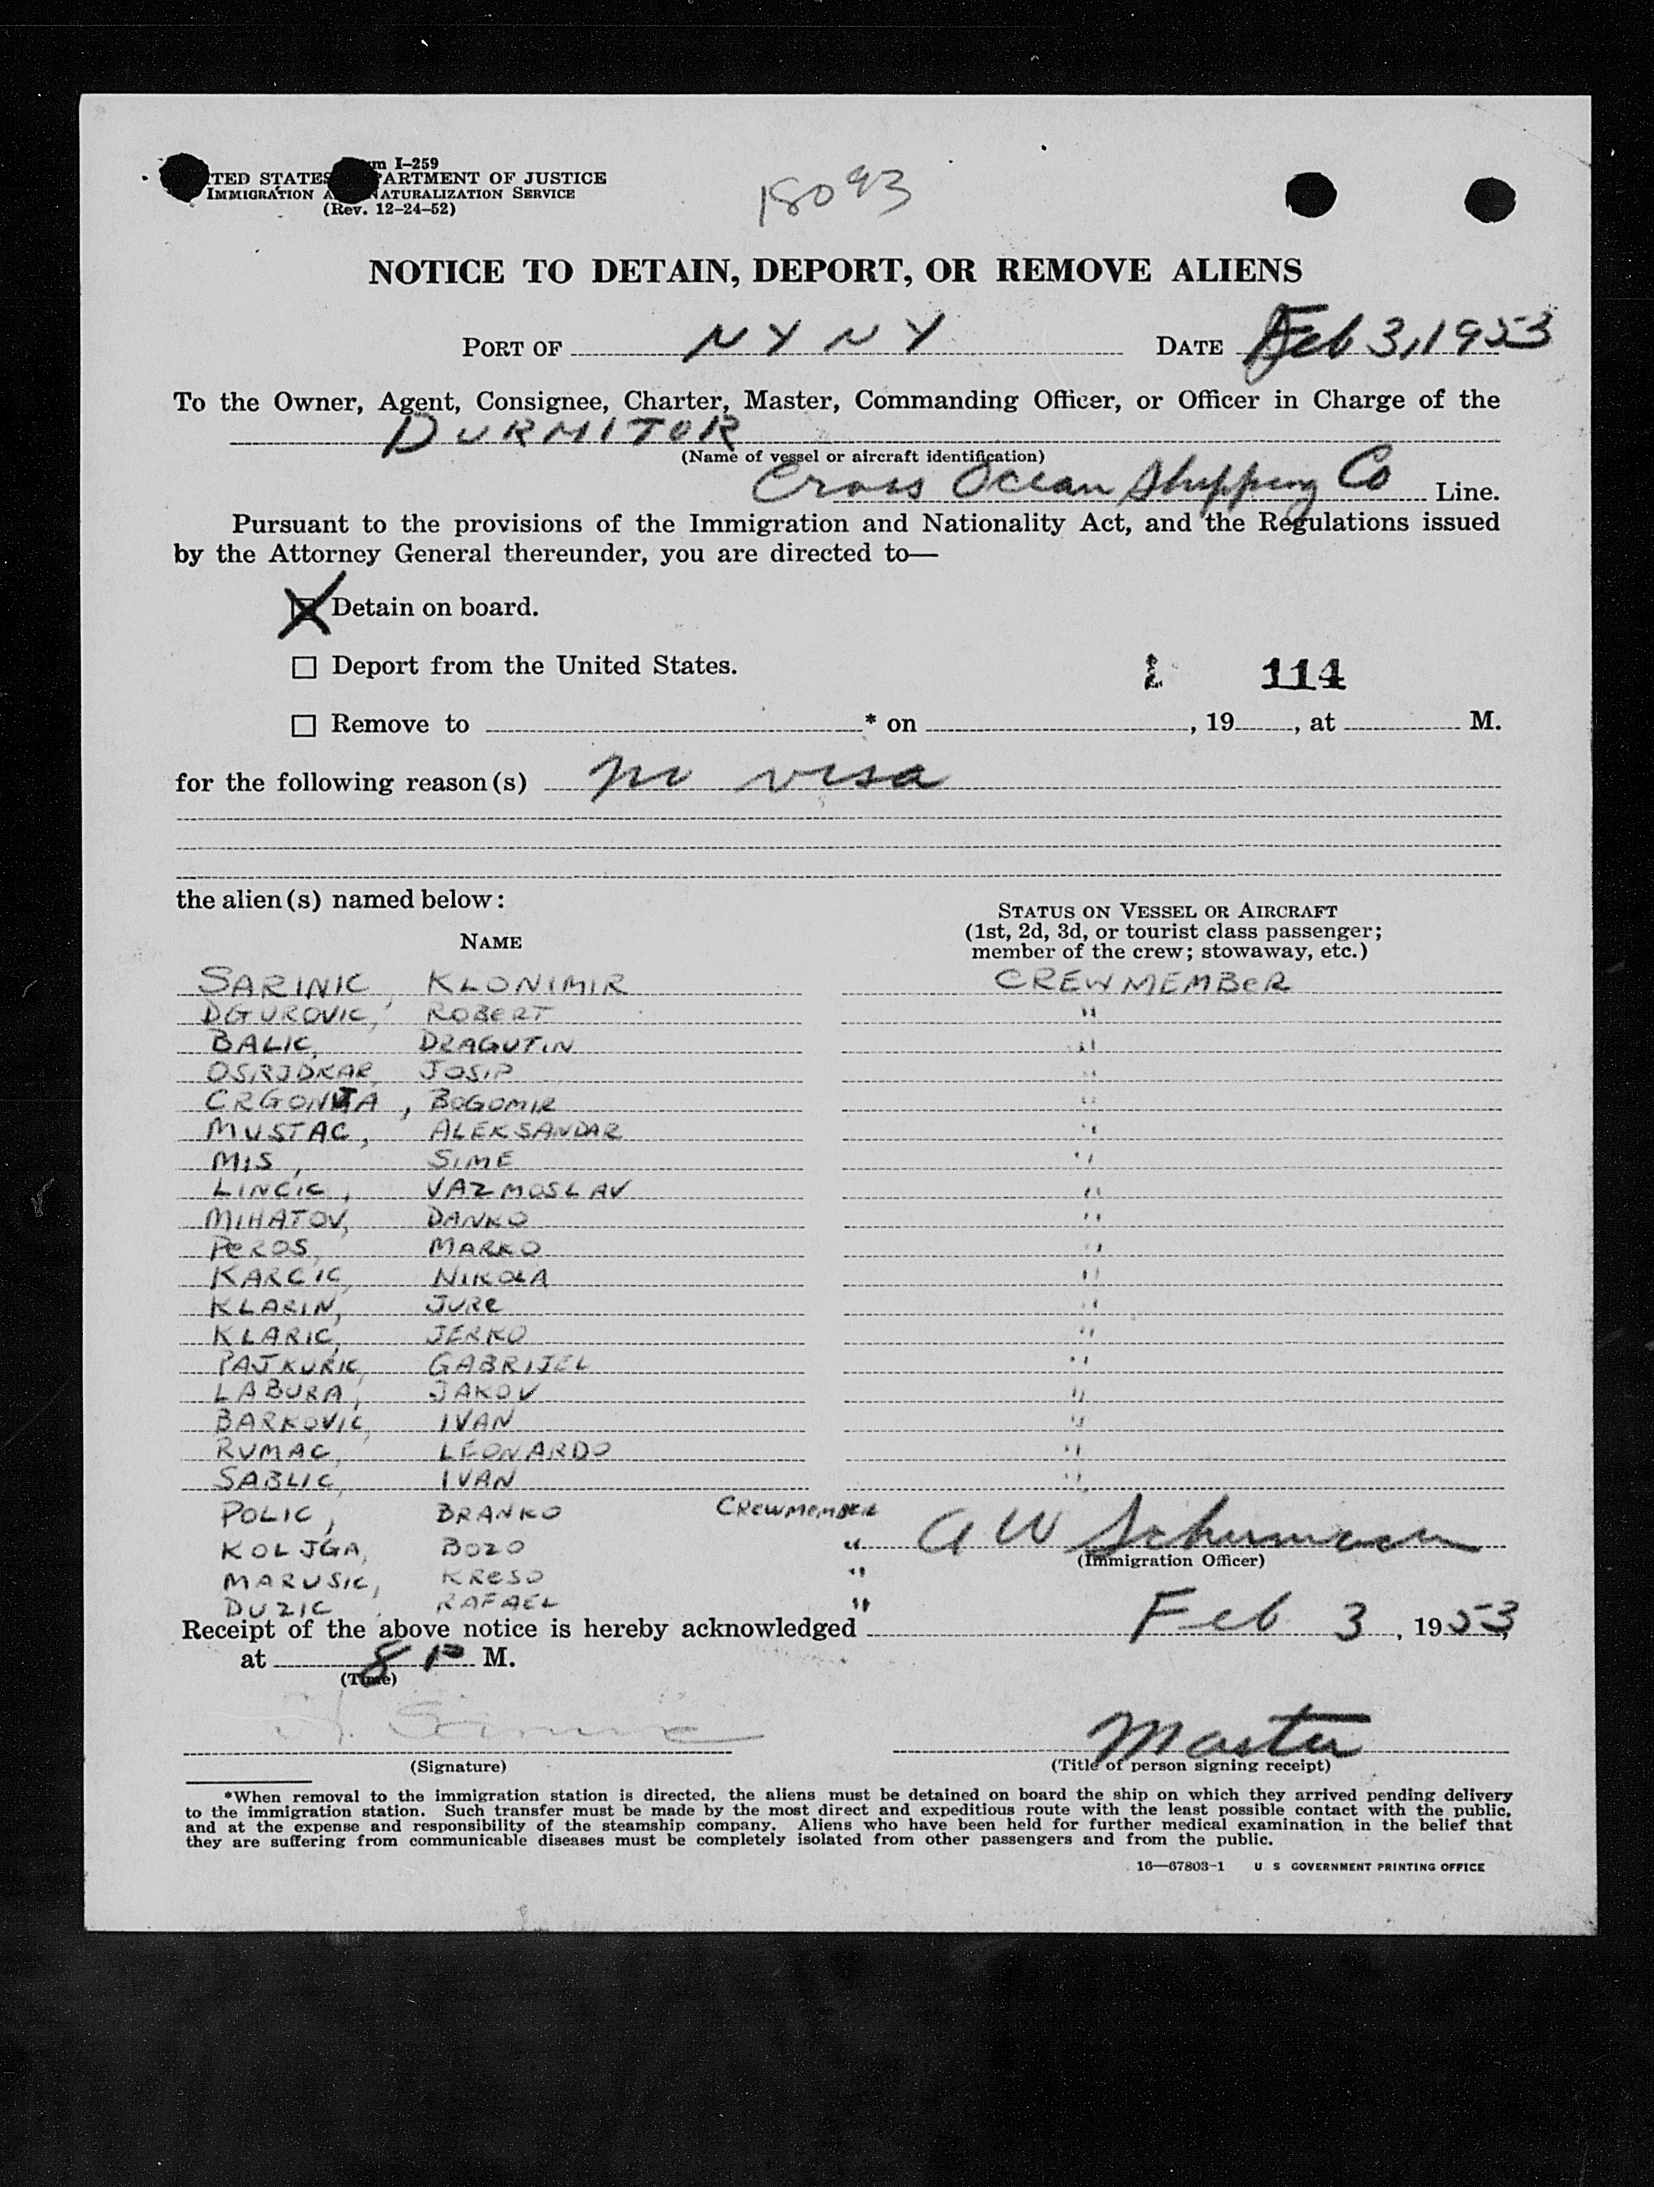 m I-259
TED STATES PARTMENT OF JUSTICE
IMMIGRATION A NATURALIZATION SERVICE
(Rev. 12-24-52)
18093
NOTICE TO DETAIN, DEPORT, OR REMOVE ALIENS
PORT OF NY NY DATE Feb 3, 1953
To the Owner, Agent, Consignee, Charter, Master, Commanding Officer, or Officer in Charge of the
DURMITOR
(Name of vessel or aircraft identification)
Cross Ocean Shipping Co Line.
Pursuant to the provisions of the Immigration and Nationality Act, and the Regulations issued
by the Attorney General thereunder, you are directed to—
Detain on board.
Deport from the United States. 1 114
Remove to * on , 19 , at M.
for the following reason(s) no visa
the alien(s) named below:
NAME
STATUS ON VESSEL OR AIRCRAFT
(1st, 2d, 3d, or tourist class passenger;
member of the crew; stowaway, etc.)
SARINIC, KLONIMIR CREWMEMBER
DGUROVIC, ROBERT "
BALIC, DRAGUTIN "
JOSIP "
CRGONJA, BOGOMIR "
MUSTAC, ALEKSANDAR "
MIS, SIME "
LINCIC, VAZMOSLAV "
MIHATOV, DANKO "
PEROS, MARKO "
KARCIC, NIKOLA "
KLARIN, JURE "
KLARIC, JERKO "
PAJKURIC, GABRIJEL "
LABURA, JAKOV "
BARKOVIC, IVAN "
RUMAC, LEONARDO "
SABLIC, IVAN "
POLIC, BRANKO CREWMEMBER
KOLJGA, BOZO " A W Schumann
(Immigration Officer)
MARUSIC, KRESO "
DUZIC, RAFAEL "
Receipt of the above notice is hereby acknowledged Feb 3, 1953,
at 8 P M.
(Time)
Master
(Signature) (Title of person signing receipt)
*When removal to the immigration station is directed, the aliens must be detained on board the ship on which they arrived pending delivery
to the immigration station. Such transfer must be made by the most direct and expeditious route with the least possible contact with the public,
and at the expense and responsibility of the steamship company. Aliens who have been held for further medical examination in the belief that
they are suffering from communicable diseases must be completely isolated from other passengers and from the public.
16—67803-1 U S GOVERNMENT PRINTING OFFICE